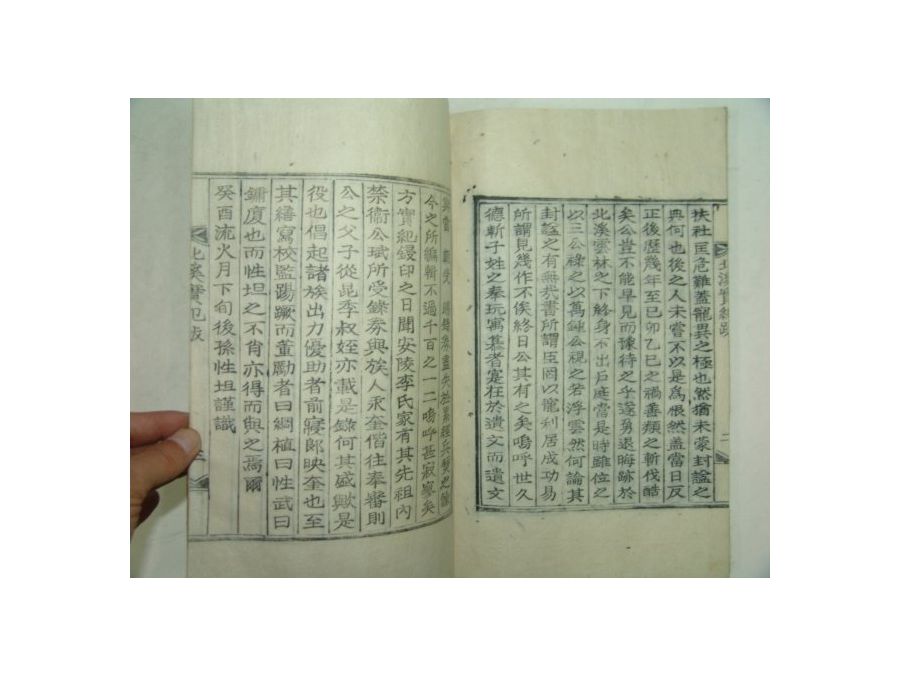 北溪實紀跋
扶社匡危難盖寵異之極也然猶未蒙封諡之
典何也後之人未嘗不以是爲恨然盖當日反
正後歷幾年至己卯乙巳之禍善類之斬伐酷
矣公豈不能早見而據待之乎遂勇退晦跡於
北溪雲林之下終身不出戶庭當是時雖位之
以三公祿之以萬鍾公視之若浮雲然何論其
封諡之有無哉書所謂臣罔以寵利居成功易
所謂見幾作不俟終日公其有之矣嗚呼世久
德斬子姓之奉玩寓慕者寔在於遺文而遺文
二
盡失於累經兵燹之餘
今之所編輯不過千百之一二嗚呼甚寂寥矣
方實紀鋟印之日聞安陵李氏家有其先祖內
禁衛公珷所受錄券與族人永奎偕往奉審則
公之父子從昆季叔姪亦載是錄何其盛歟是
役也倡起諸族出力優助者前寢郞映奎也至
其繕寫校監踢蹶而董勵者曰綢植曰性武曰
鏞廈也而性坦之不肖亦得而與之焉爾
癸酉流火月下旬後孫性坦謹識
北溪實紀跋
三